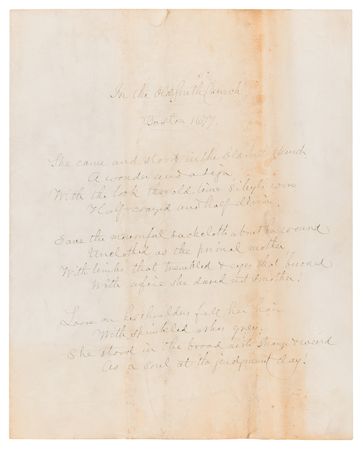 In the Old South Church
Boston 1677.
She came and stood in the Old South Church
A wonder and a sign
With the look the old time sibyls wore
Half-crazed and half-divine.
Save the mournful sackcloth about her wound
Unclothed as the primal mother
With limbs that trembled & eyes that
With a fire she dared not smother.
Loose on her shoulders fell her hair
With sprinkled ashes gray.
She stood in the broad aisle strange & weird
As a soul at the judgment day.